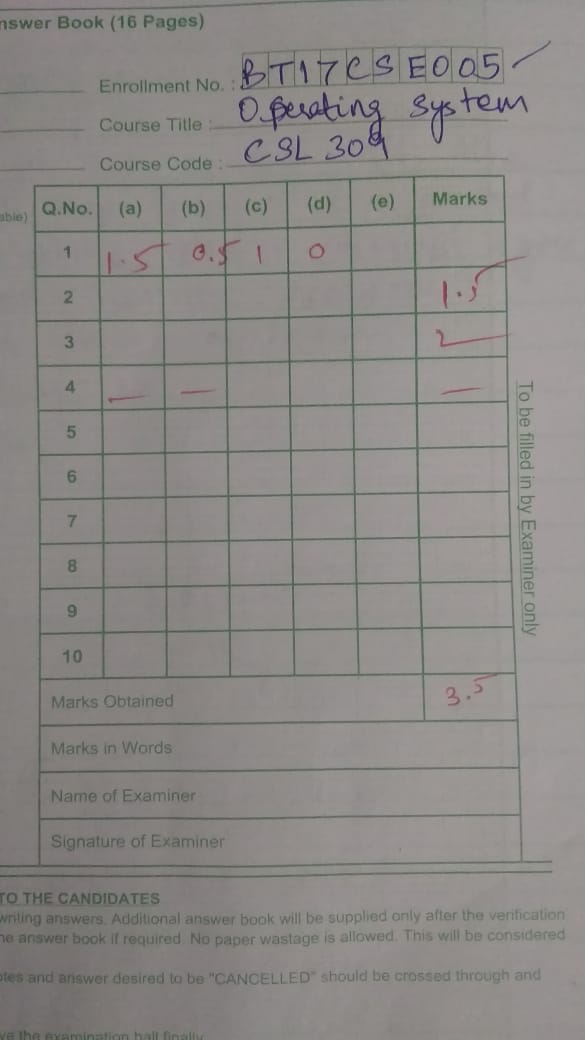 nswer Book (16 Pages)
Enrollment No. : BT17CSE005
Course Title : Operating system
Course Code : CSL 309
able) Q.No. (a) (b) (c) (d) (e) Marks
1 1.5 0.5 1 0
2 1.5
3 2
4 — — —
5
6
7
8
9
10
To be filled in by Examiner only
Marks Obtained 3.5
Marks in Words
Name of Examiner
Signature of Examiner
TO THE CANDIDATES
writing answers. Additional answer book will be supplied only after the verification
he answer book if required. No paper wastage is allowed. This will be considered
otes and answer desired to be "CANCELLED" should be crossed through and
ve the examination hall finally